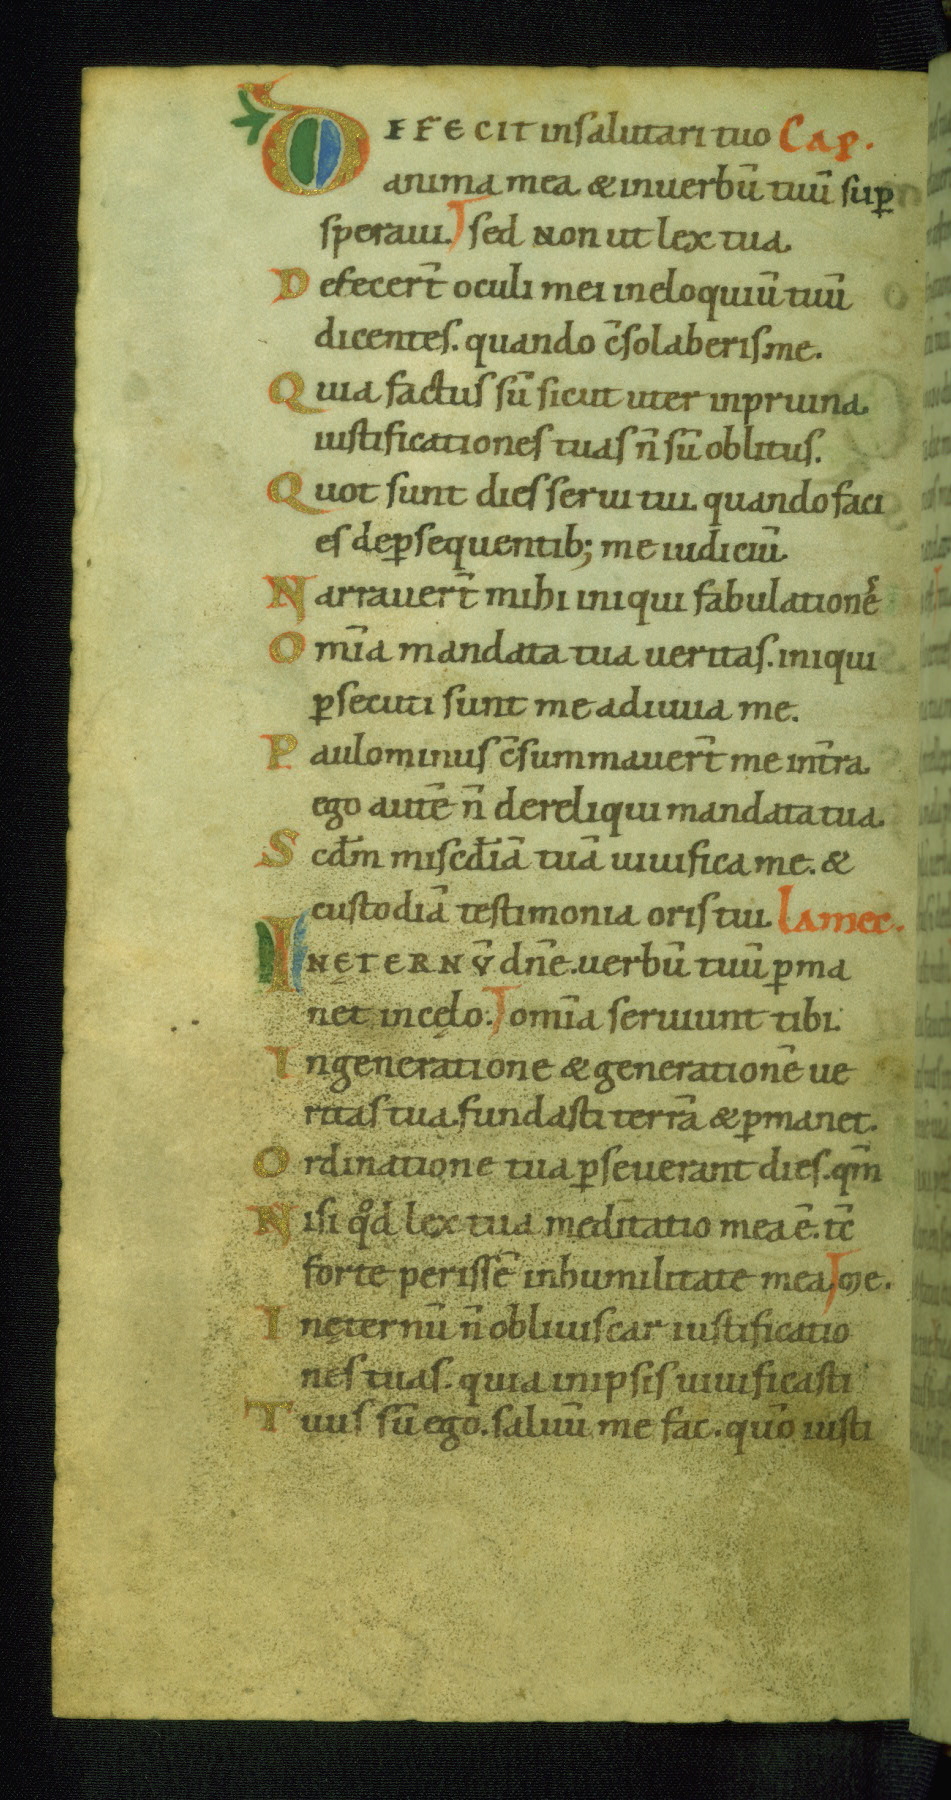 DIFECIT insalutari tuo Cap.
anima mea & inuerbū tuū sup̄
speraui. sed non ut lex tua.
Defecer̄t oculi mei ineloquiū tuū
dicentes. quando c̄solaberis me.
Quia factus sū sicut uter inpruina.
iustificationes tuas n̄ sū oblitus.
Quot sunt dies serui tui. quando faci
es de p̄sequentib; me iudiciū.
Narrauer̄t mihi iniqui fabulationē
Om̄ia mandata tua ueritas. iniqui
p̄secuti sunt me adiuua me.
Paulominus c̄summauer̄t me int̄ra
ego autē n̄ dereliqui mandata tua.
Scđm misc̄dīā tuā uiuifica me. &
custodiā testimonia oris tui. lamec.
INETERNV̄ dn̄e. uerbū tuū p̄ma
net incęlo. om̄ia seruiunt tibi.
Ingeneratione & generationē ue
ritas tua. fundasti terrā & p̄manet.
Ordinatione tua p̄seuerant dies. qm̄
Nisi qd̊ lex tua meditatio mea ē. tc̄
forte perissē inhumilitate mea. me.
Ineternū n̄ obliuiscar iustificatio
nes tuas. quia inipsis uiuificasti
Tuus sū ego. saluū me fac. quō iusti